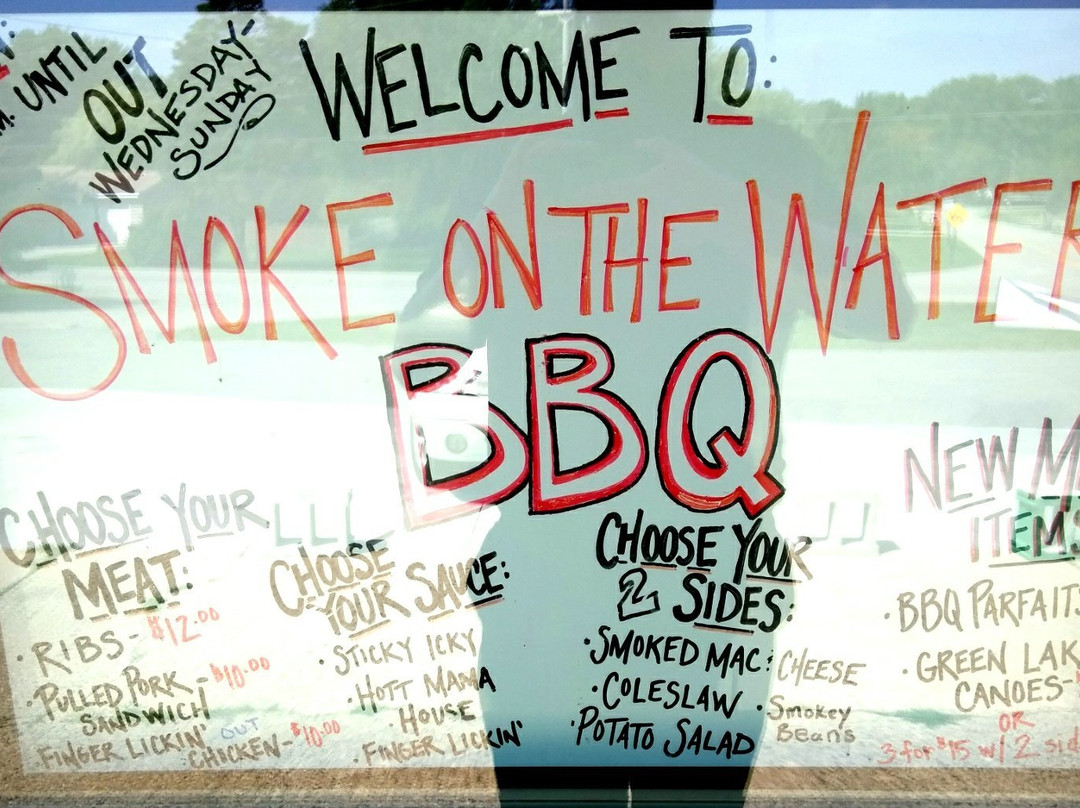 UNTIL
OUT
WEDNESDAY-
SUNDAY
WELCOME TO:
SMOKE ON THE WATER
BBQ
CHOOSE YOUR
MEAT:
• RIBS - $12.00
• PULLED PORK - $10.00
SANDWICH
• FINGER LICKIN' OUT
CHICKEN - $10.00
CHOOSE
YOUR SAUCE:
• STICKY ICKY
• HOTT MAMA
• HOUSE
• FINGER LICKIN'
CHOOSE YOUR
2 SIDES:
• SMOKED MAC & CHEESE
• COLESLAW
• POTATO SALAD
• Smokey
Beans
NEW
ITEMS
• BBQ PARFAITS
• GREEN LAK
CANOES -
OR
3 for $15 w/ 2 sid